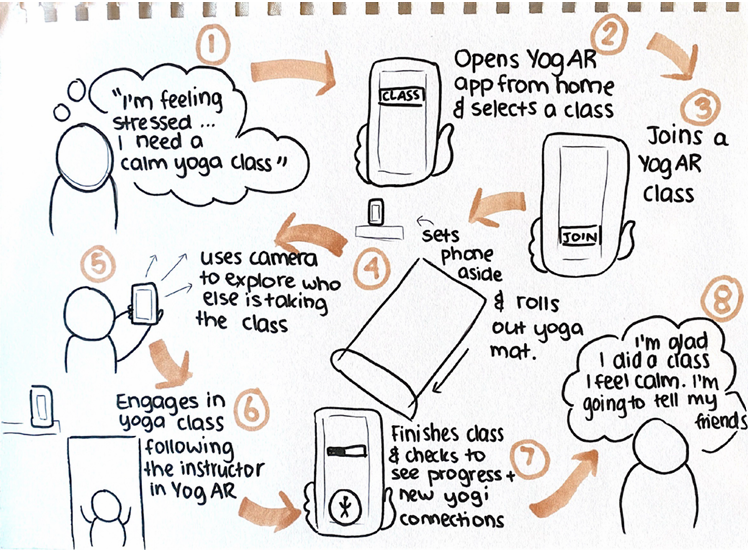 1
"I'm feeling
stressed ...
I need a
calm yoga class"
2
Opens YogAR
app from home
& selects a class
CLASS
3
Joins a
YogAR
class
JOIN
4
sets
phone
aside
& rolls
out yoga
mat.
5
uses camera
to explore who
else is taking
the class
6
Engages in
yoga class
following
the instructor
in YogAR
7
Finishes class
& checks to
see progress +
new yogi
connections
8
I'm glad
I did a class
I feel calm. I'm
going to tell my
friends